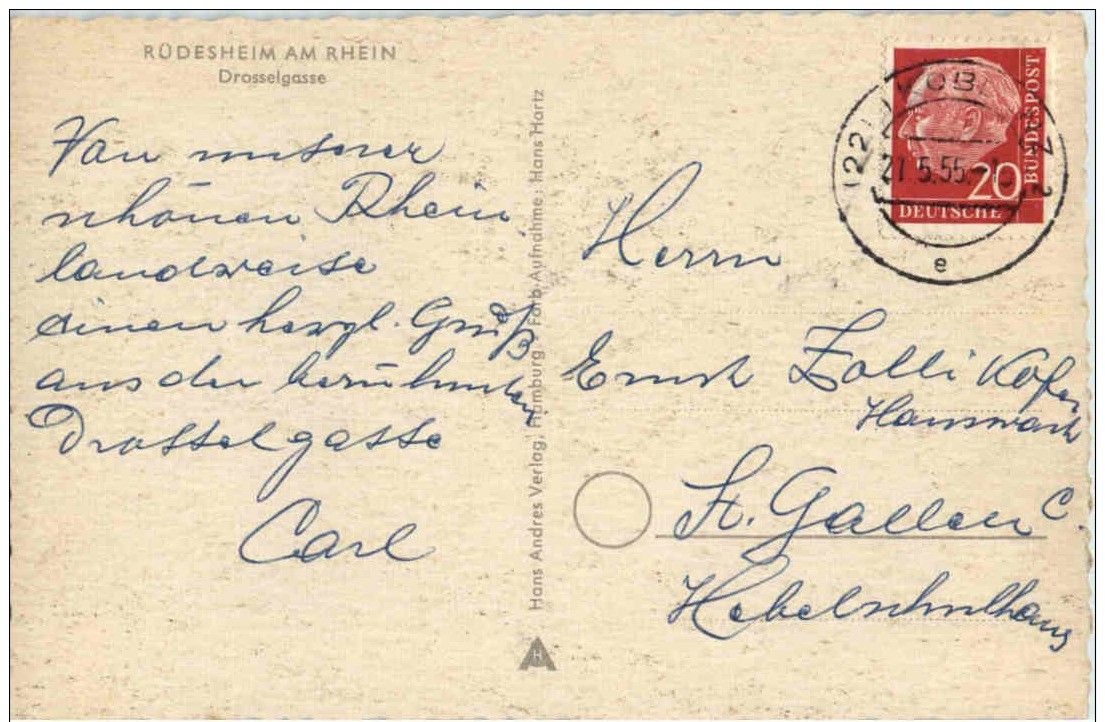 RÜDESHEIM AM RHEIN
Drosselgasse
Von unserer
schönen Rhein
landreise
einen herzl. Gruß
aus der berühmten
Drosselgasse
Carl
Hans Andres Verlag, Hamburg · Farb-Aufnahme: Hans Hartz
H
BUNDESPOST
20
DEUTSCHE
21.5.55
e
Herrn
Ernst Zollikofer
Hauswart
St. Gallen C.
Hebelschulhaus